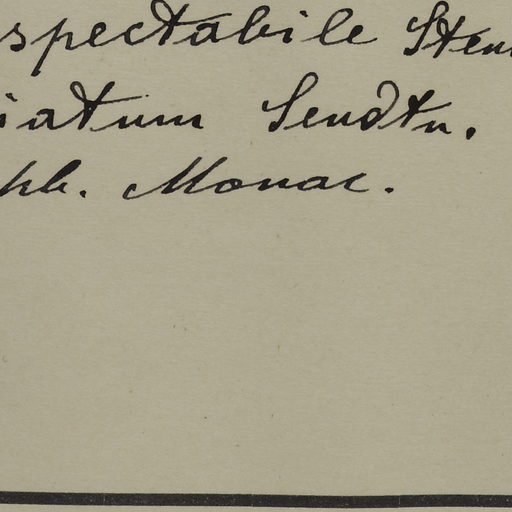 spectabile Steu
iatum Sendtn.
hb. Monac.